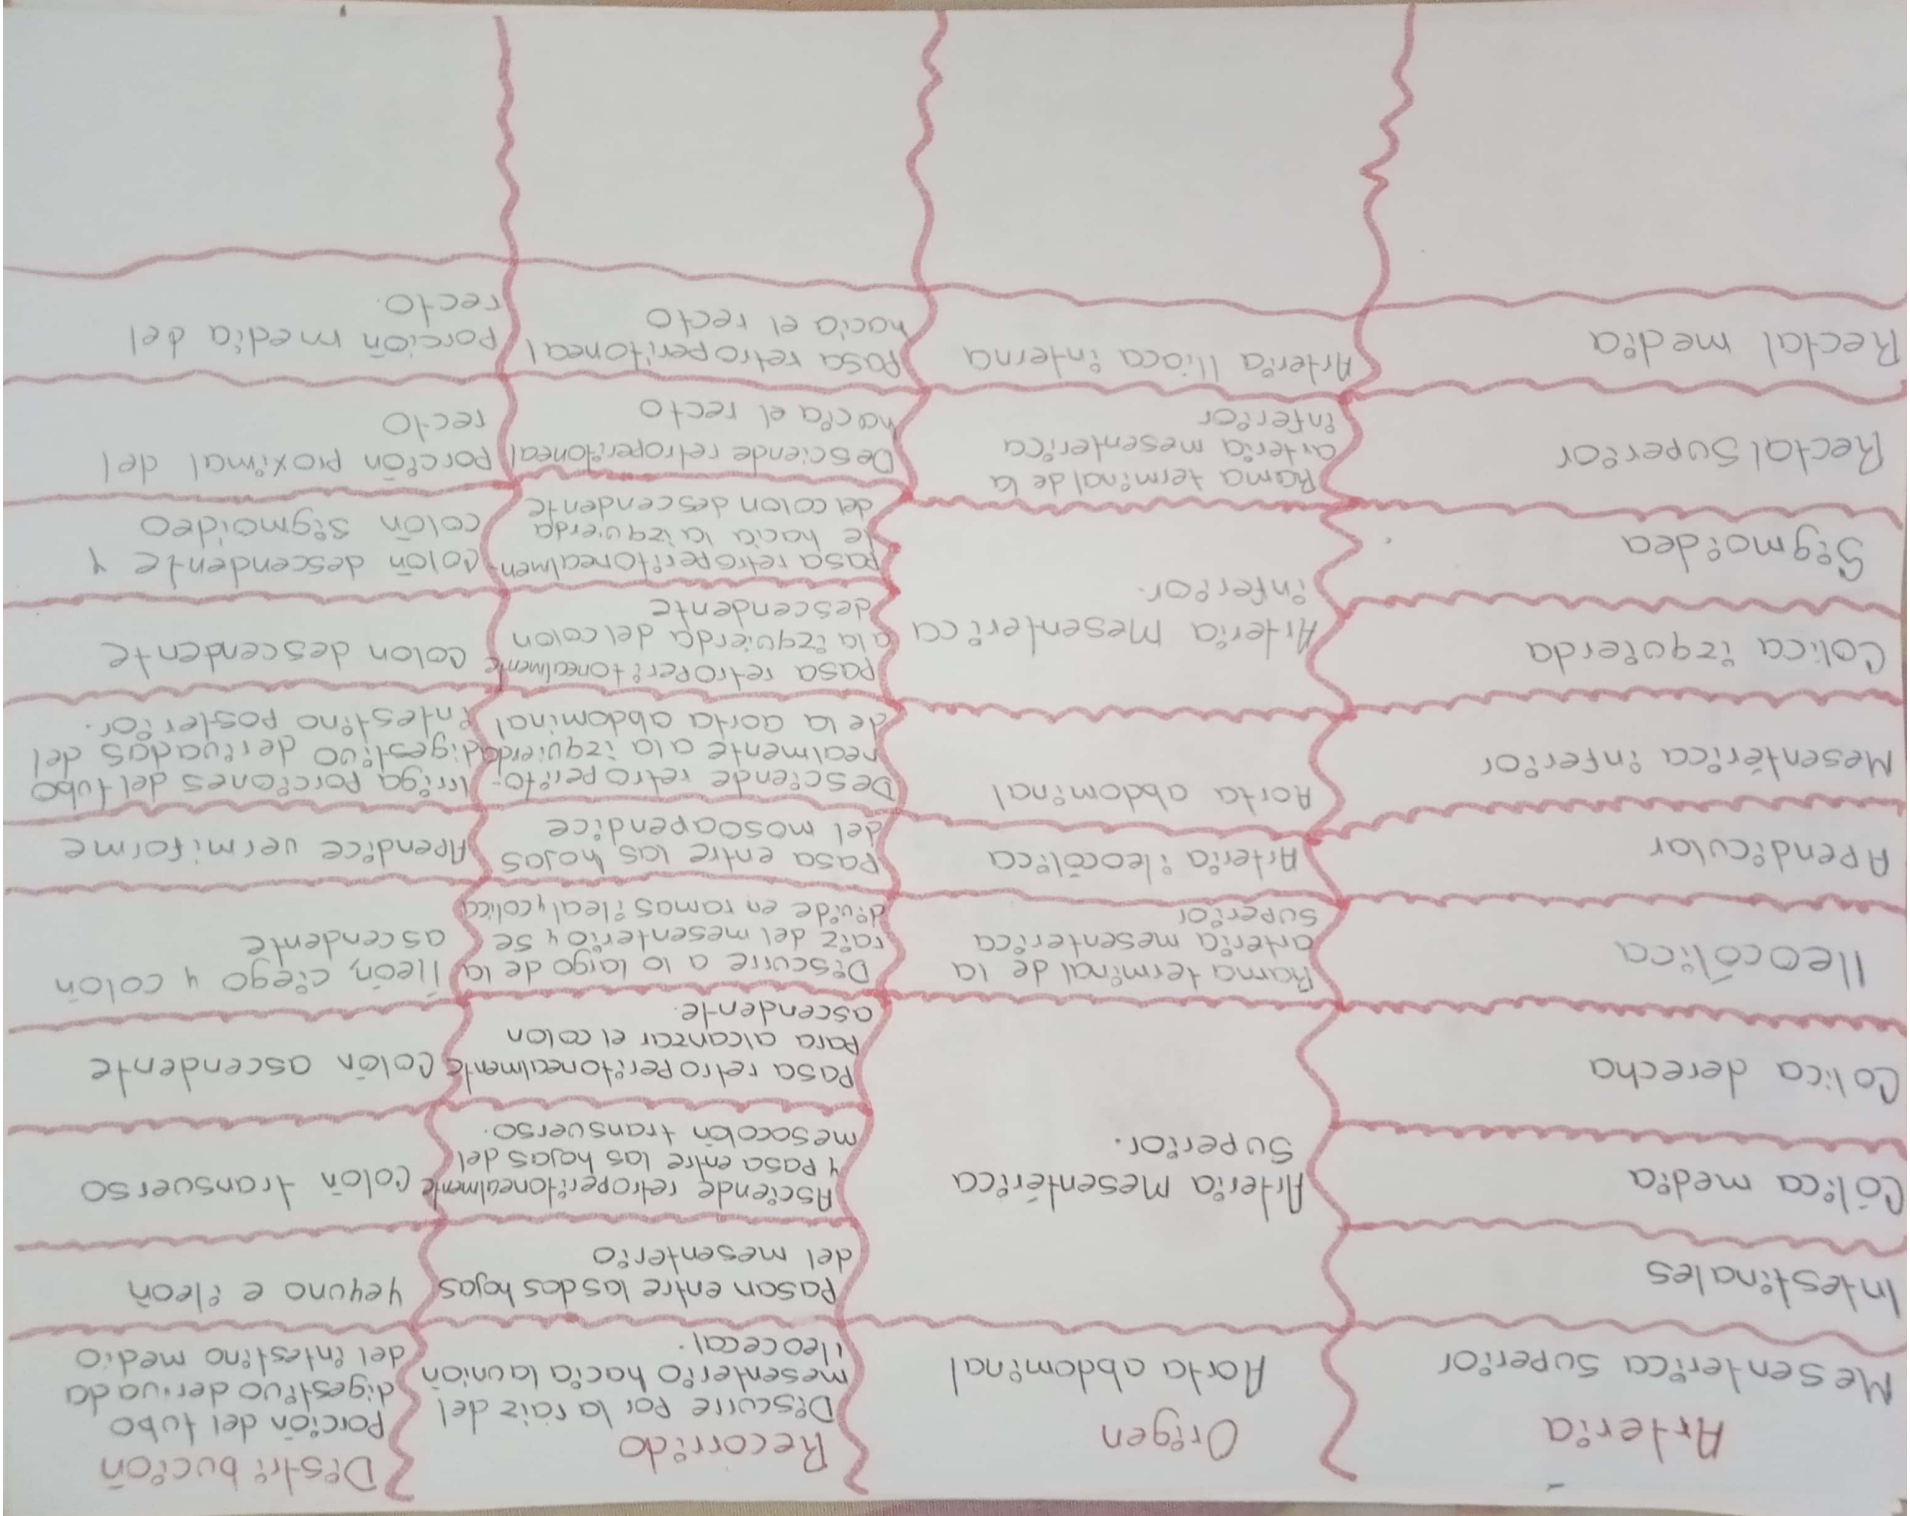 Arteria
Origen
Recorrido
Distribución
Mesenterica Superior
Aorta abdominal
Discurre por la raiz del
mesenterio hacia la unión
ileocecal.
Porción del tubo
digestivo derivada
del intestino medio
Intestinales
Arteria Mesentérica
Superior.
Pasan entre las dos hojas
del mesenterio
yeyuno e ileoñ
Cólica media
Asciende retroperitonealmente
y pasa entre las hojas del
mesocolon transverso.
Coloñ transverso
Colica derecha
Pasa retroperitonealmente
para alcanzar el colon
ascendente.
Colon ascendente
Ileocólica
Rama terminal de la
arteria mesenterica
superior
Discurre a lo largo de la
raiz del mesenterio y se
divide en ramas ileal y colica
Ileón, ciego y colon
ascendente
Apendicular
Arteria ileocólica
Pasa entre las hojas
del mosoapendice
Apendice vermiforme
Mesentérica inferior
Aorta abdominal
Desciende retroperito-
nealmente a la izquierda
de la aorta abdominal
Irriga porciones del tubo
digestivo derivadas del
intestino posterior.
Colica izquierda
Arteria Mesenterica
inferior.
pasa retroperitonealmente
a la izquierda del colon
descendente
colon descendente
Sigmoidea
pasa retroperitonealmen-
te hacia la izquierda
del colon descendente
coloñ descendente y
coloñ Sigmoideo
Rectal Superior
Rama terminal de la
arteria mesenterica
inferior
Desciende retroperitoneal
hacia el recto
porción proximal del
recto
Rectal media
Arteria Iliaca interna
Pasa retroperitoneal
hacia el recto
porción media del
recto.